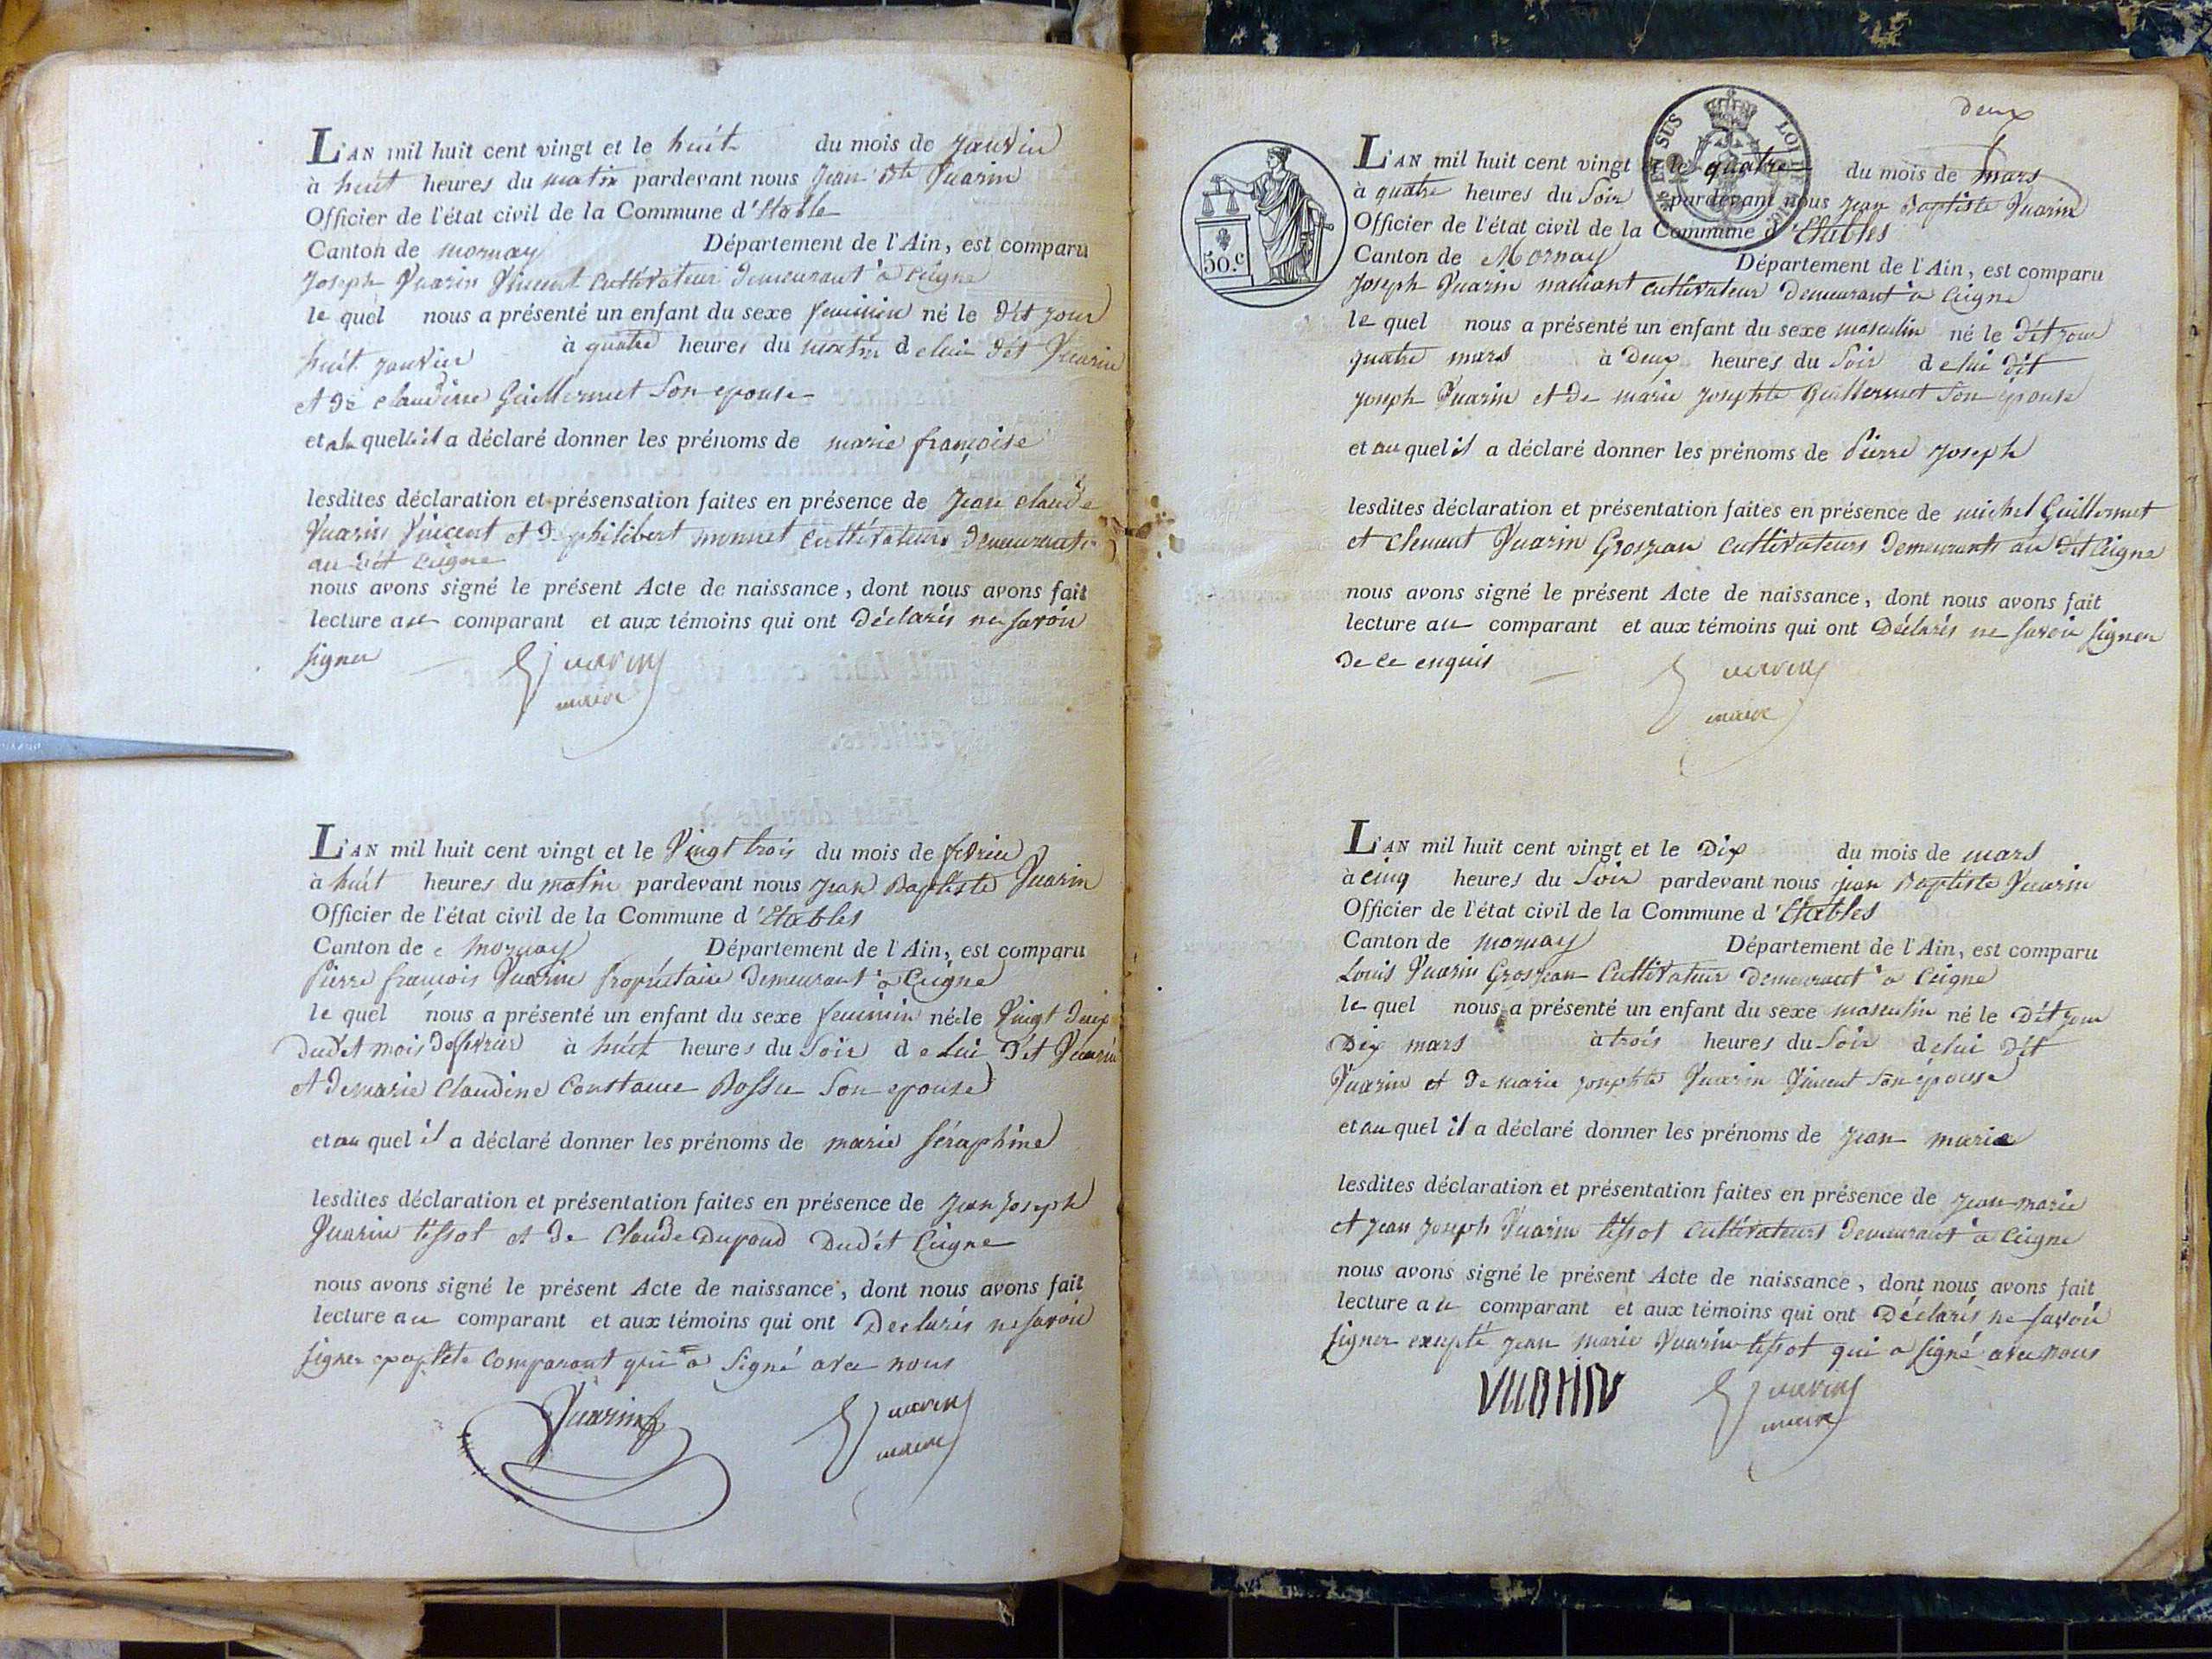 L'AN mil huit cent vingt et le huit du mois de janvier
à huit heures du matin pardevant nous Jean Bte Vuarin
Officier de l'état civil de la Commune d'Etable
Canton de mornay Département de l'Ain, est comparu
Joseph Vuarin Vincent cultivateur demeurant à Ceigne
le quel nous a présenté un enfant du sexe feminin né le dit jour
huit janvier à quatre heures du matin de lui dit Vuarin
et de claudine Guillermet son epouse
et a la quelle il a déclaré donner les prénoms de marie françoise
lesdites déclaration et présensation faites en présence de Jean claude
Vuarin Vincent et de philibert monnet cultivateurs demeurants
au dit Ceigne
nous avons signé le présent Acte de naissance, dont nous avons fait
lecture au comparant et aux témoins qui ont déclarés ne savoir
signer
Vuarin
maire
L'AN mil huit cent vingt et le Vingt trois du mois de fevrier
à huit heures du matin pardevant nous jean Baptiste Vuarin
Officier de l'état civil de la Commune d'Etables
Canton de mornay Département de l'Ain, est comparu
Pierre françois Vuarin propriétaire demeurant à Ceigne
le quel nous a présenté un enfant du sexe feminin née le Vingt deux
dudit mois de fevrier à huit heures du Soir de lui dit Vuarin
et de marie Claudine Constance Bossu Son epouse
et au quel il a déclaré donner les prénoms de marie séraphine
lesdites déclaration et présentation faites en présence de jean joseph
Vuarin tissot et de Claude Dupond Dudit Ceigne
nous avons signé le présent Acte de naissance, dont nous avons fait
lecture au comparant et aux témoins qui ont Declarés ne savoir
signer excepté le comparant qui a signé avec nous
Vuarin Vuarin
maire
deux
EN SUS LOI DE
50.c
L'AN mil huit cent vingt et le quatre du mois de mars
à quatre heures du Soir pardevant nous jean Baptiste Vuarin
Officier de l'état civil de la Commune d'Etables
Canton de Mornay Département de l'Ain, est comparu
Joseph Vuarin cultivateur demeurant à Ceigne
le quel nous a présenté un enfant du sexe masculin né le dit jour
quatre mars à Deux heures du Soir de lui dit
joseph Vuarin et de marie josephte Guillermet Son épouse
et au quel il a déclaré donner les prénoms de Pierre joseph
lesdites déclaration et présentation faites en présence de michel Guillermet
et clement Vuarin Grosjean cultivateurs demeurants au dit Ceigne
nous avons signé le présent Acte de naissance, dont nous avons fait
lecture au comparant et aux témoins qui ont Déclarés ne savoir signer
de ce enquis
Vuarin
maire
L'AN mil huit cent vingt et le Dix du mois de mars
à cinq heures du Soir pardevant nous jean Baptiste Vuarin
Officier de l'état civil de la Commune d'Etables
Canton de mornay Département de l'Ain, est comparu
Louis Vuarin Grosjean Cultivateur demeurant à Ceigne
le quel nous a présenté un enfant du sexe masculin né le Dit jour
Dix mars à trois heures du Soir de lui dit
Vuarin et de marie josephte Vuarin Vincent Son épouse
et au quel il a déclaré donner les prénoms de jean marie
lesdites déclaration et présentation faites en présence de jean marie
et jean joseph Vuarin tissot cultivateurs demeurant à Ceigne
nous avons signé le présent Acte de naissance, dont nous avons fait
lecture au comparant et aux témoins qui ont Déclarés ne savoir
signer excepté jean marie Vuarin tissot qui a signé avec nous
VUARIN Vuarin
maire